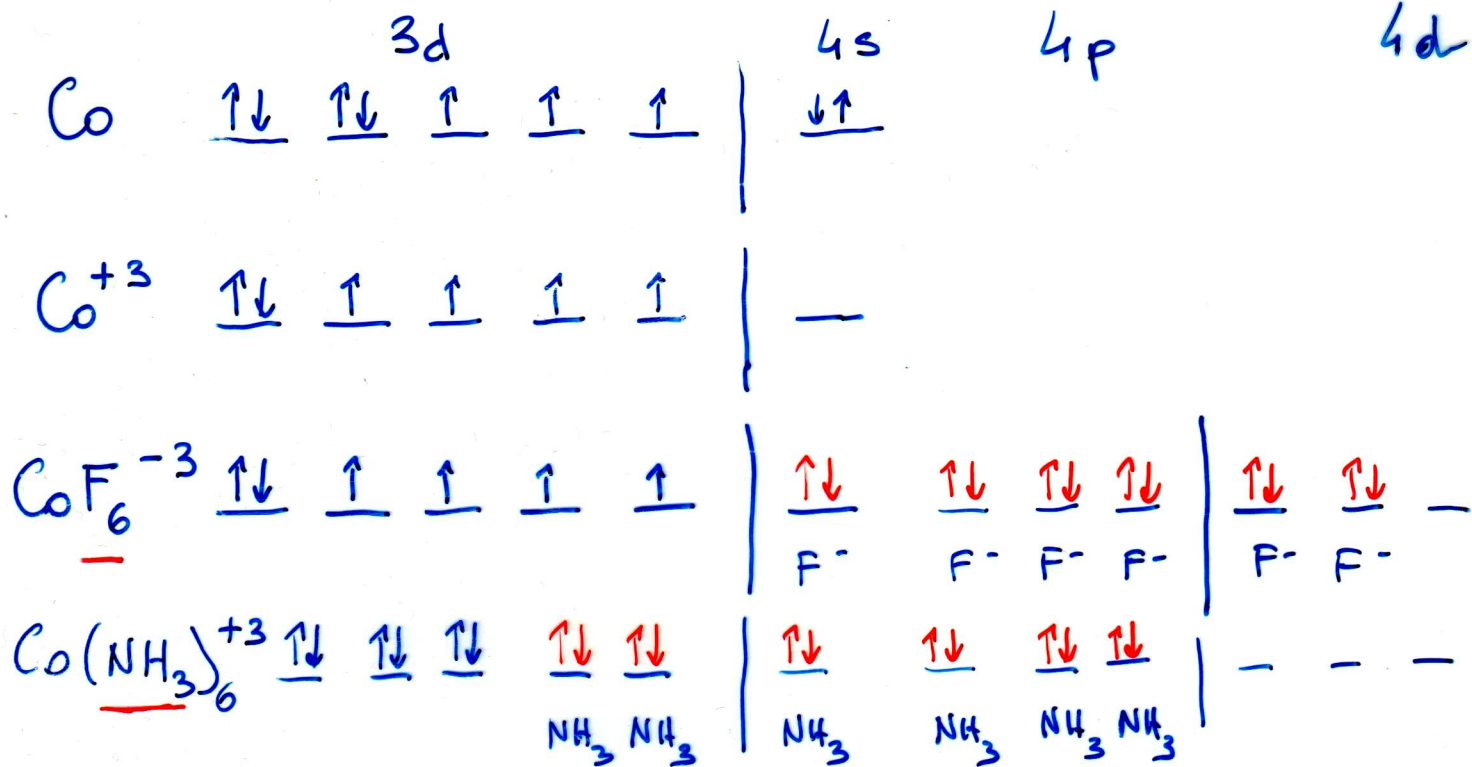 3d 4s 4p 4d
Co ↑↓ ↑↓ ↑ ↑ ↑ | ↓↑
Co+3 ↑↓ ↑ ↑ ↑ ↑ | _
CoF6-3 ↑↓ ↑ ↑ ↑ ↑ | ↑↓ ↑↓ ↑↓ ↑↓ | ↑↓ ↑↓ _
F- F- F- F- F- F-
Co(NH3)6+3 ↑↓ ↑↓ ↑↓ ↑↓ ↑↓ | ↑↓ ↑↓ ↑↓ ↑↓ | _ _ _
NH3 NH3 NH3 NH3 NH3 NH3